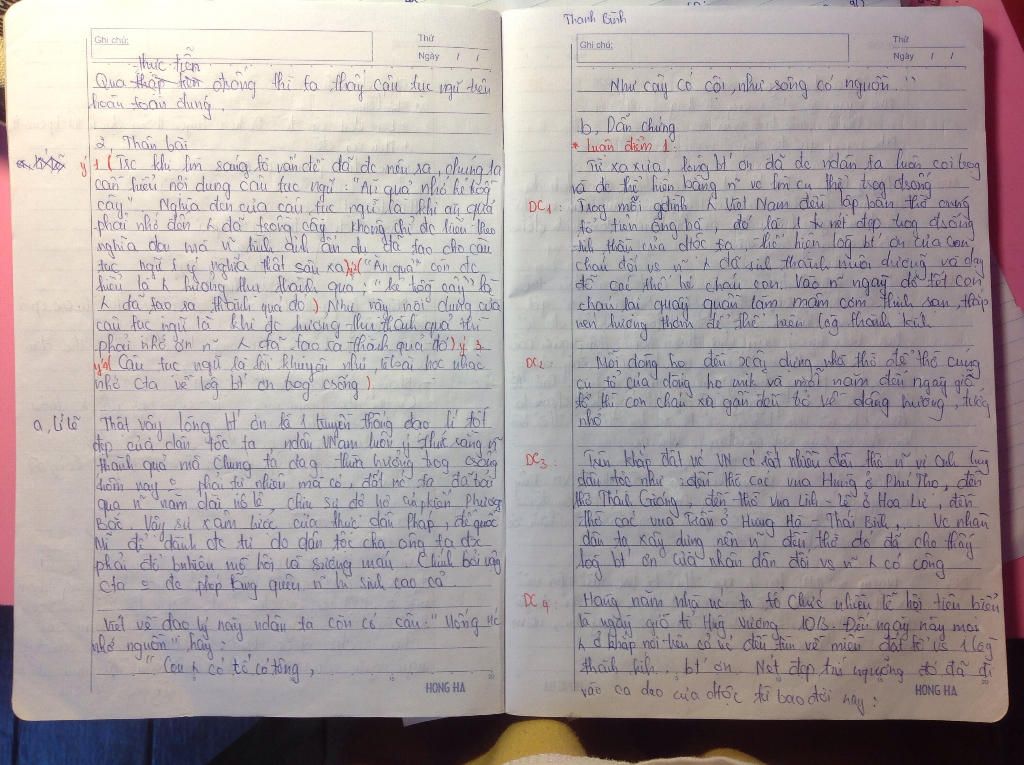 Ghi chú:
Thứ
Ngày / /
thực tiễn
Qua thấp tiễn đsống thì ta thấy câu tục ngữ trên
hoàn toàn đúng.
2, Thân bài
ý 1 (Trc khi lm sáng tỏ vấn đề đã đc nêu ra, chúng ta
cần hiểu nội dung câu tục ngữ: "Ăn quả nhớ kẻ trồng
cây". Nghĩa đen của câu tục ngữ là khi ăn quả
phải nhớ đến k đã trồng cây, không chỉ đc hiểu theo
nghĩa đen mà vì hình ảnh ẩn dụ đã tạo cho câu
tục ngữ 1 ý nghĩa thật sâu xa) ý2 ("Ăn quả" còn đc
hiểu là k hưởng thụ thành quả; "kẻ trồng cây" là
k đã tạo ra thành quả đó) Như vậy nội dung của
câu tục ngữ là khi đc hưởng thụ thành quả thì
phải nhớ ơn n~ k đã tạo ra thành quả đó) ý 3
ý4 (Câu tục ngữ là lời khuyên nhủ, là bài học nhắc
nhở cta về lòg bt' ơn trog csống)
a, Lí lẽ
Thật vậy lòng bt' ơn là 1 truyền thống đạo lí tốt
đẹp của dân tộc ta, ndân VNam luôn ý thức rằng n~
thành quả mà chúng ta đag thừa hưởng trog csống
hôm nay o phải tự nhiên mà có, đất nc ta đã trải
qua n~ năm dài nô lệ, chịu sự đô hộ của pkiến phương
Bắc. Vậy sự xâm lược của thực dân Pháp, đế quốc
Mĩ để dành đc tự do dân tộc cha ông ta đã
phải đổ bnhiêu mồ hôi và xương máu. Chính bởi vậy
cta o đc phép lãng quên n~ hi sinh cao cả
Viết về đạo lý này ndân ta còn có câu: "Uống nc
nhớ nguồn" hay:
"Con k có tổ có tông,
HONG HA
Thanh Bình
Ghi chú:
Thứ
Ngày / /
Như cây có cội, như sông có nguồn"
b, Dẫn chứng
* Luận điểm 1:
Từ xa xưa, lòng bt' ơn đã đc ndân ta luôn coi trog
và đc thể hiện bằng n~ vc lm cụ thể trog đsống
DC1: Trog mỗi gđình k Việt Nam đều lập bàn thờ cúng
tổ tiên ông bà, đó là 1 nét đẹp trog đsống
tinh thần của dtộc ta thể hiện lòg bt' ơn của con
cháu đối vs n~ k đã sinh thành nuôi dưỡng và dạy
dỗ các thế hệ cháu con. Vào n~ ngày đó tết con
cháu lại quây quần làm mâm cơm thịnh soạn, thắp
nén hương thơm để thể hiện lòg thành kính
DC2: Mỗi dòng họ đều xây dựng nhà thờ để thờ cúng
cụ tổ của dòng họ mik và mỗi năm đến ngày giỗ
tổ thì con cháu xa gần đều tụ về dâng hương, tưởng
nhớ
DC3: Trên khắp đất nc VN có rất nhiều đền thờ n~ vị anh hùng
dân tộc như: đền thờ các vua Hùng ở Phú Thọ, đền
thờ Thánh Gióng, đền thờ vua Đinh - Lê ở Hoa Lư, đền
thờ các vua Trần ở Hưng Hà - Thái Bình,... Vc nhân
dân ta xây dựng nên n~ đền thờ đó đã cho thấy
lòg bt' ơn của nhân dân đối vs n~ k có công
DC4: Hàng năm nhà nc ta tổ chức nhiều lễ hội tiêu biểu
là ngày giỗ tổ Hùg Vương 10/3. Đến ngày này mọi
k ở khắp nơi trên cả nc đều tìm về miền đất tổ vs 1 lòg
thành kính, bt' ơn. Nét đẹp tín ngưỡng đó đã đi
vào ca dao của dtộc từ bao đời nay:
HONG HA